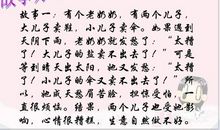 故事一，有个老奶奶，有两个儿子，
大儿子卖鞋，小儿子卖伞。如果遇到
天阴下雨，老奶奶就发愁了：“太糟
了！大儿子的盐卖不出去了！”可是
等到晴天出太阳，她又发愁：“太糟
了！小儿子的伞又卖不出去了！”所
以，她成天愁眉苦脸，担惊受怕，一
直很烦恼。结果，两个儿子也受她影
响，心情很糟糕，生意自然做不好。